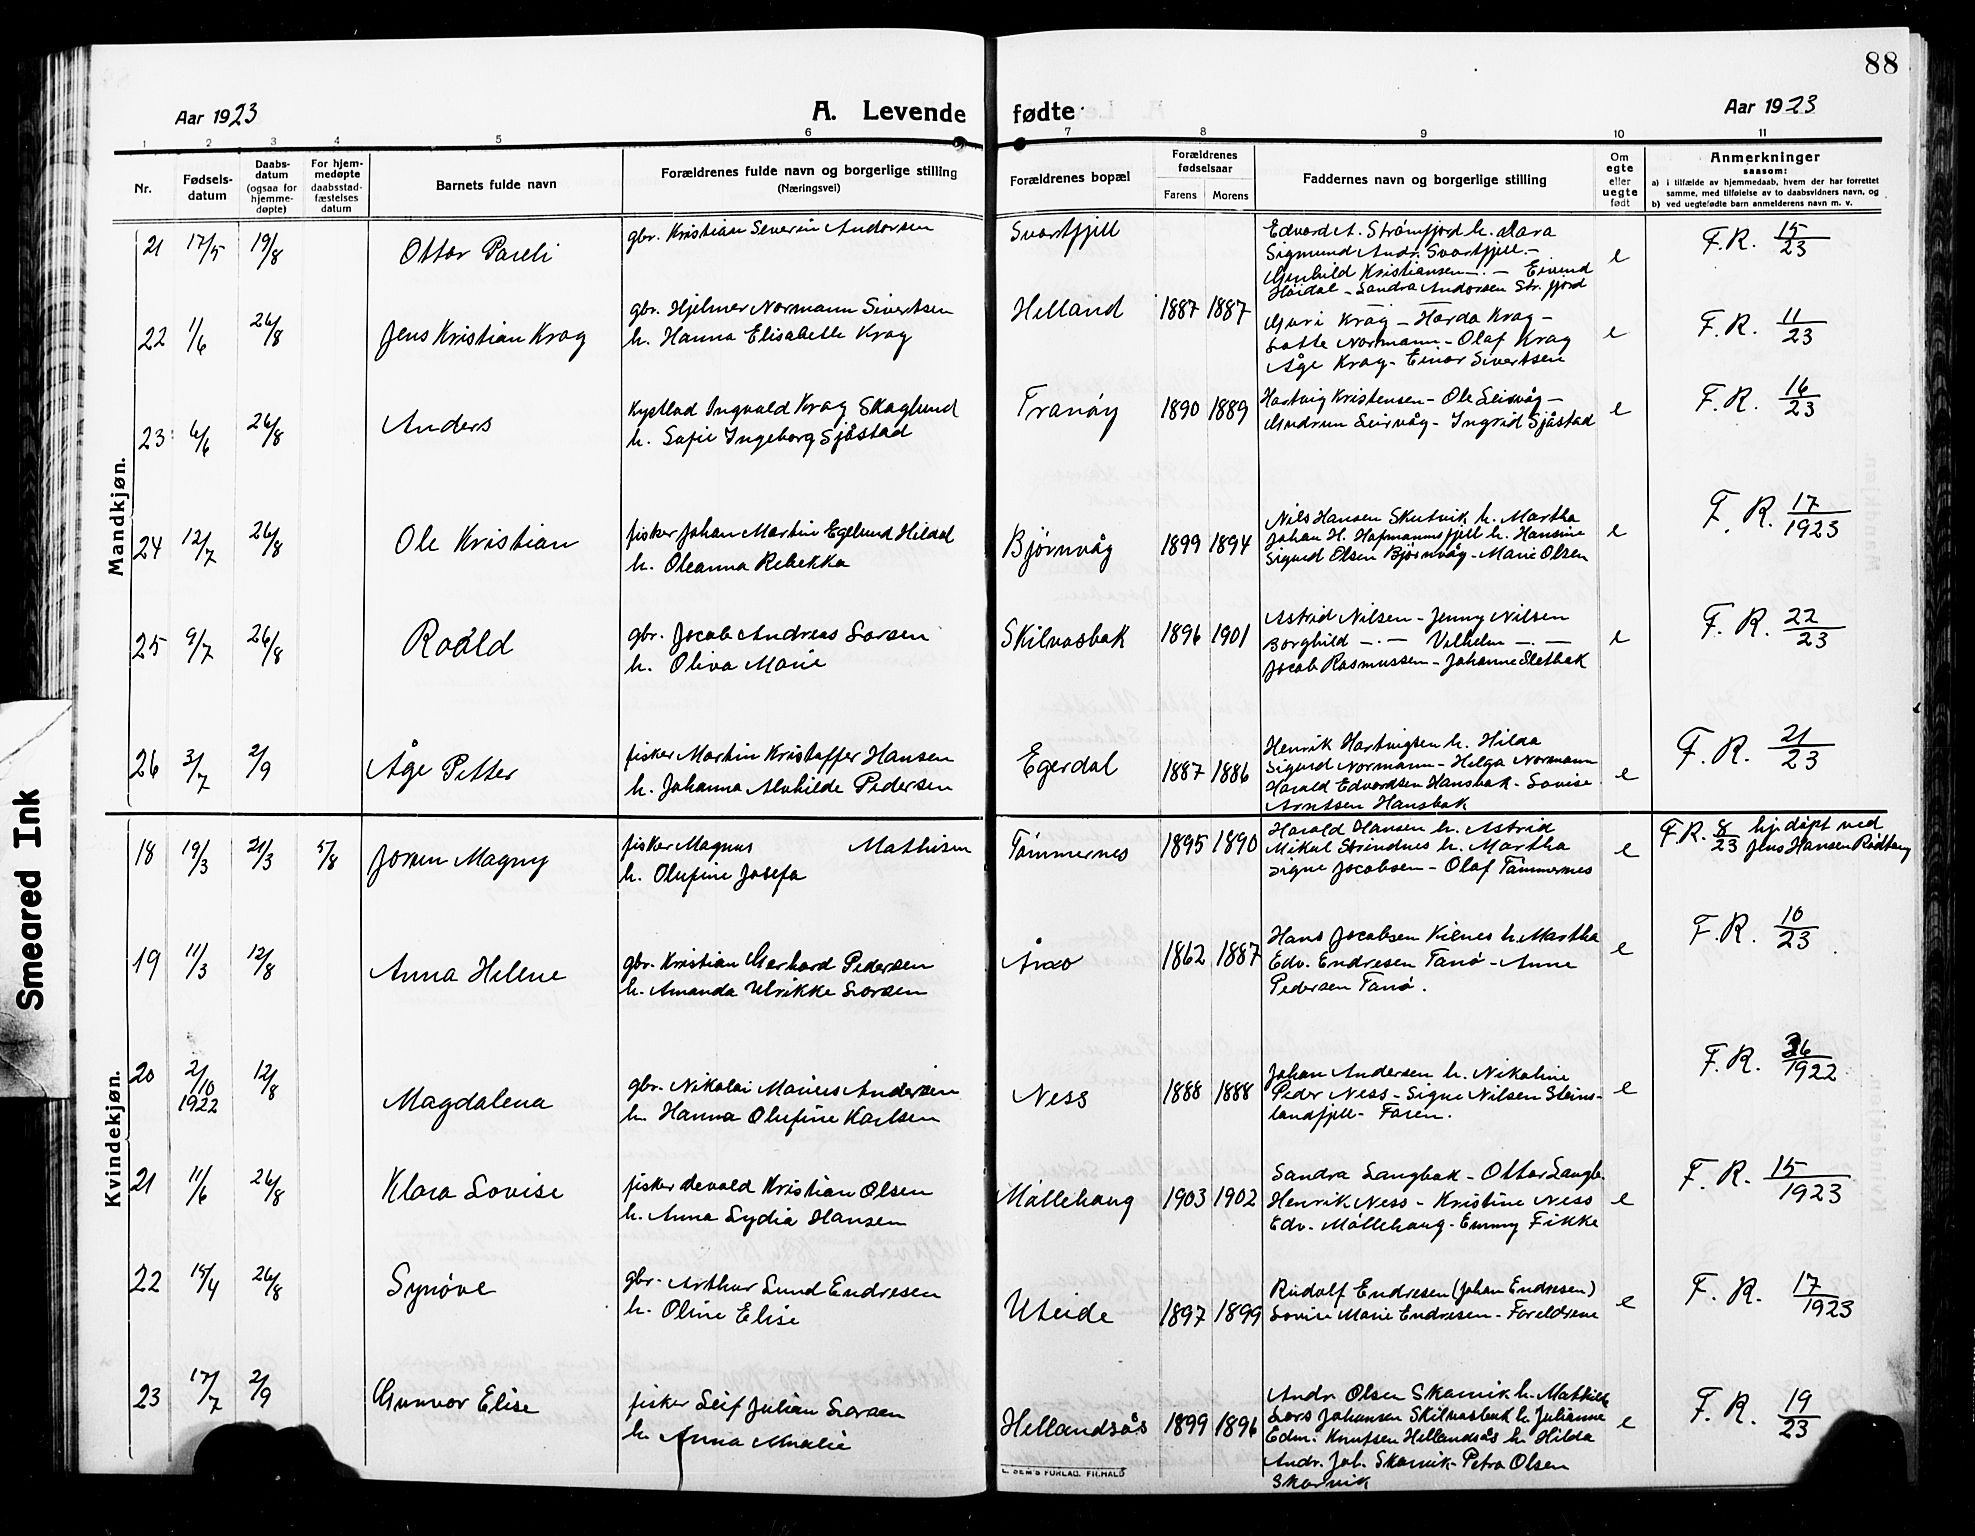 88
Aar 1923
A. Levende fødte
Aar 1923
1 2 3 4 5 6 7 8 9 10 11
Nr.
Fødsels-
datum
Daabs-
datum
(ogsaa for
hjemme-
døpte)
For hjem-
medøpte
daabsstad-
fæstelses
datum
Barnets fulde navn
Forældrenes fulde navn og borgerlige stilling
(Næringsvei)
Forældrenes bopæl
Forældrenes
fødselsaar
Farens Morens
Faddernes navn og borgerlige stilling
Om
egte
eller
uegte
født
Anmerkninger
saasom:
a) i tilfælde av hjemmedaab, hvem der har forrettet
samme, med tilføielse av to daabsvidners navn, og
b) ved uegtefødte barn anmelderens navn m. v.
Mandkjøn.
21 17/5 19/8 Ottar Pareli
gbr. Kristian Severin Andorsen
Svartfjell
Edvard A. Strømfjord h. Mara
Sigmund Andr. Svartfjell -
Gunhild Kristiansen -.- Eivind
Høidal - Sandra Andorsen Str. fjord
e F.R. 15/23
22 1/6 26/8 Jens Kristian Krag
gbr. Hjelmer Normann Sivertsen
h. Hanna Elisabethe Krag
Helland 1887 1887
Guri Krag - Harda Krag -
Lotte Normann - Olaf Krag
Åge Krag - Einar Sivertsen
e F.R. 11/23
23 6/6 26/8 Anders
Kystlad Ingvald Krag Skaglund
h. Sofie Ingeborg Sjåstad
Tranøy 1890 1889
Hartvig Kristensen - Ole Leirvåg -
Gudrun Leirvåg - Ingrid Sjåstad
e F.R. 16/23
24 12/7 26/8 Ole Kristian
fisker Johan Martin Egelund Hildal
h. Oleanna Rebekka
Bjørnvåg 1899 1894
Nils Hansen Skutvik h. Martha
Johan H. Hofmannsfjell h. Hansine
Sigurd Olsen Bjørnvåg - Marie Olsen
e F.R. 17/1923
25 9/7 26/8 Roald
gbr. Jocab Andreas Larsen
h. Oliva Marie
Skilvasbak 1896 1901
Astrid Nilsen - Jenny Nilsen
Borghild -.- Vilhelm -.-
Jocab Rasmussen - Johanne Sletbak
e F.R. 22/23
26 3/7 2/9 Åge Petter
fisker Martin Kristoffer Hansen
h. Johanna Alvhilde Pedersen
Egerdal 1887 1886
Henrik Hartvigsen h. Hilda
Sigurd Normann - Helga Normann
Harald Edvardsen Hansbak - Lovise
Arntsen Hansbak
e F.R. 21/23
Kvindekjøn.
18 19/3 21/3 5/8 Jorun Magny
fisker Magnus Mathisen
h. Olufine Josefa
Tømmernes 1895 1890
Harald Hansen h. Astrid
Mikal Strindnes h. Martha
Signe Jocabsen - Olaf Tømmernes
e F.R. 8/23 hj. døpt ved
Jens Hansen Rødtang
19 11/3 12/8 Anna Helene
gbr. Kristian Gerhard Pedersen
h. Amanda Ulrikke Larsen
1862 1887
Hans Jocabsen Kilnes h. Martha
Edv. Endresen Tanø - Anne
Pedersen Tanø.
e F.R. 10/23
20 2/10 1922 12/8 Magdalena
gbr. Nikolai Mauies Andersen
h. Hanna Olufine Karlsen
Ness 1888 1888
Johan Andersen h. Nikoline
Peder Ness - Signe Nilsen Steins-
landfjell - Faren.
e F.R. 36/1922
21 11/6 26/8 Klara Lovise
fisker Kristian Olsen
h. Anna Lydia Hansen
Møllehaug 1903 1902
Sandra Langbak - Ottar Langb.
Henrik Ness - Kristine Ness
Edv. Møllehaug - Emmy Fikke
e F.R. 15/1923
22 15/4 26/8 Synøve
gbr. Arthur Lund Endresen
h. Oline Elise
Uteide 1897 1899
Rudolf Endresen (Johan Endresen)
Lovise Marie Endresen - Foreldrene
e F.R. 17/1923
23 17/7 2/9 Gunvor Elise
fisker Leif Julian Larsen
h. Anna Amalie
Hellandsås 1899 1896
Andr. Olsen Skarvik h. Mathilde
Lars Johansen Skilvasbak h. Julianne
Edm. Knutsen Hellandsås h. Hilda
Andr. Joh. Skarvik - Petra Olsen
Skarvik
e F.R. 19/23
E. SEM'S FORLAG. FR.HALD
Smeared Ink